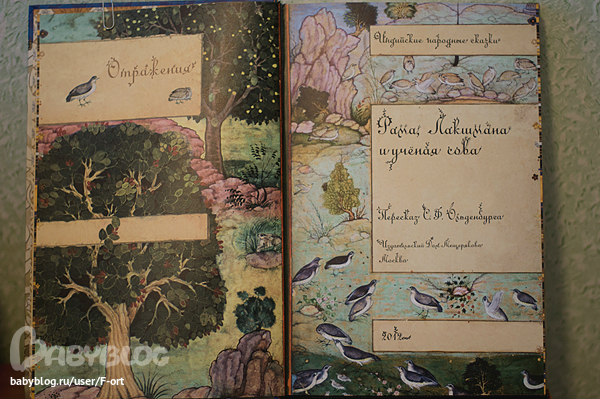 Отражения
Индийские народные сказки
Рама, Лакшмана
и учёная сова
Пересказ С. Ф. Ольденбурга
Издательский Дом Мещерякова
Москва
2012
BABYBLOG
babyblog.ru/user/F-ort